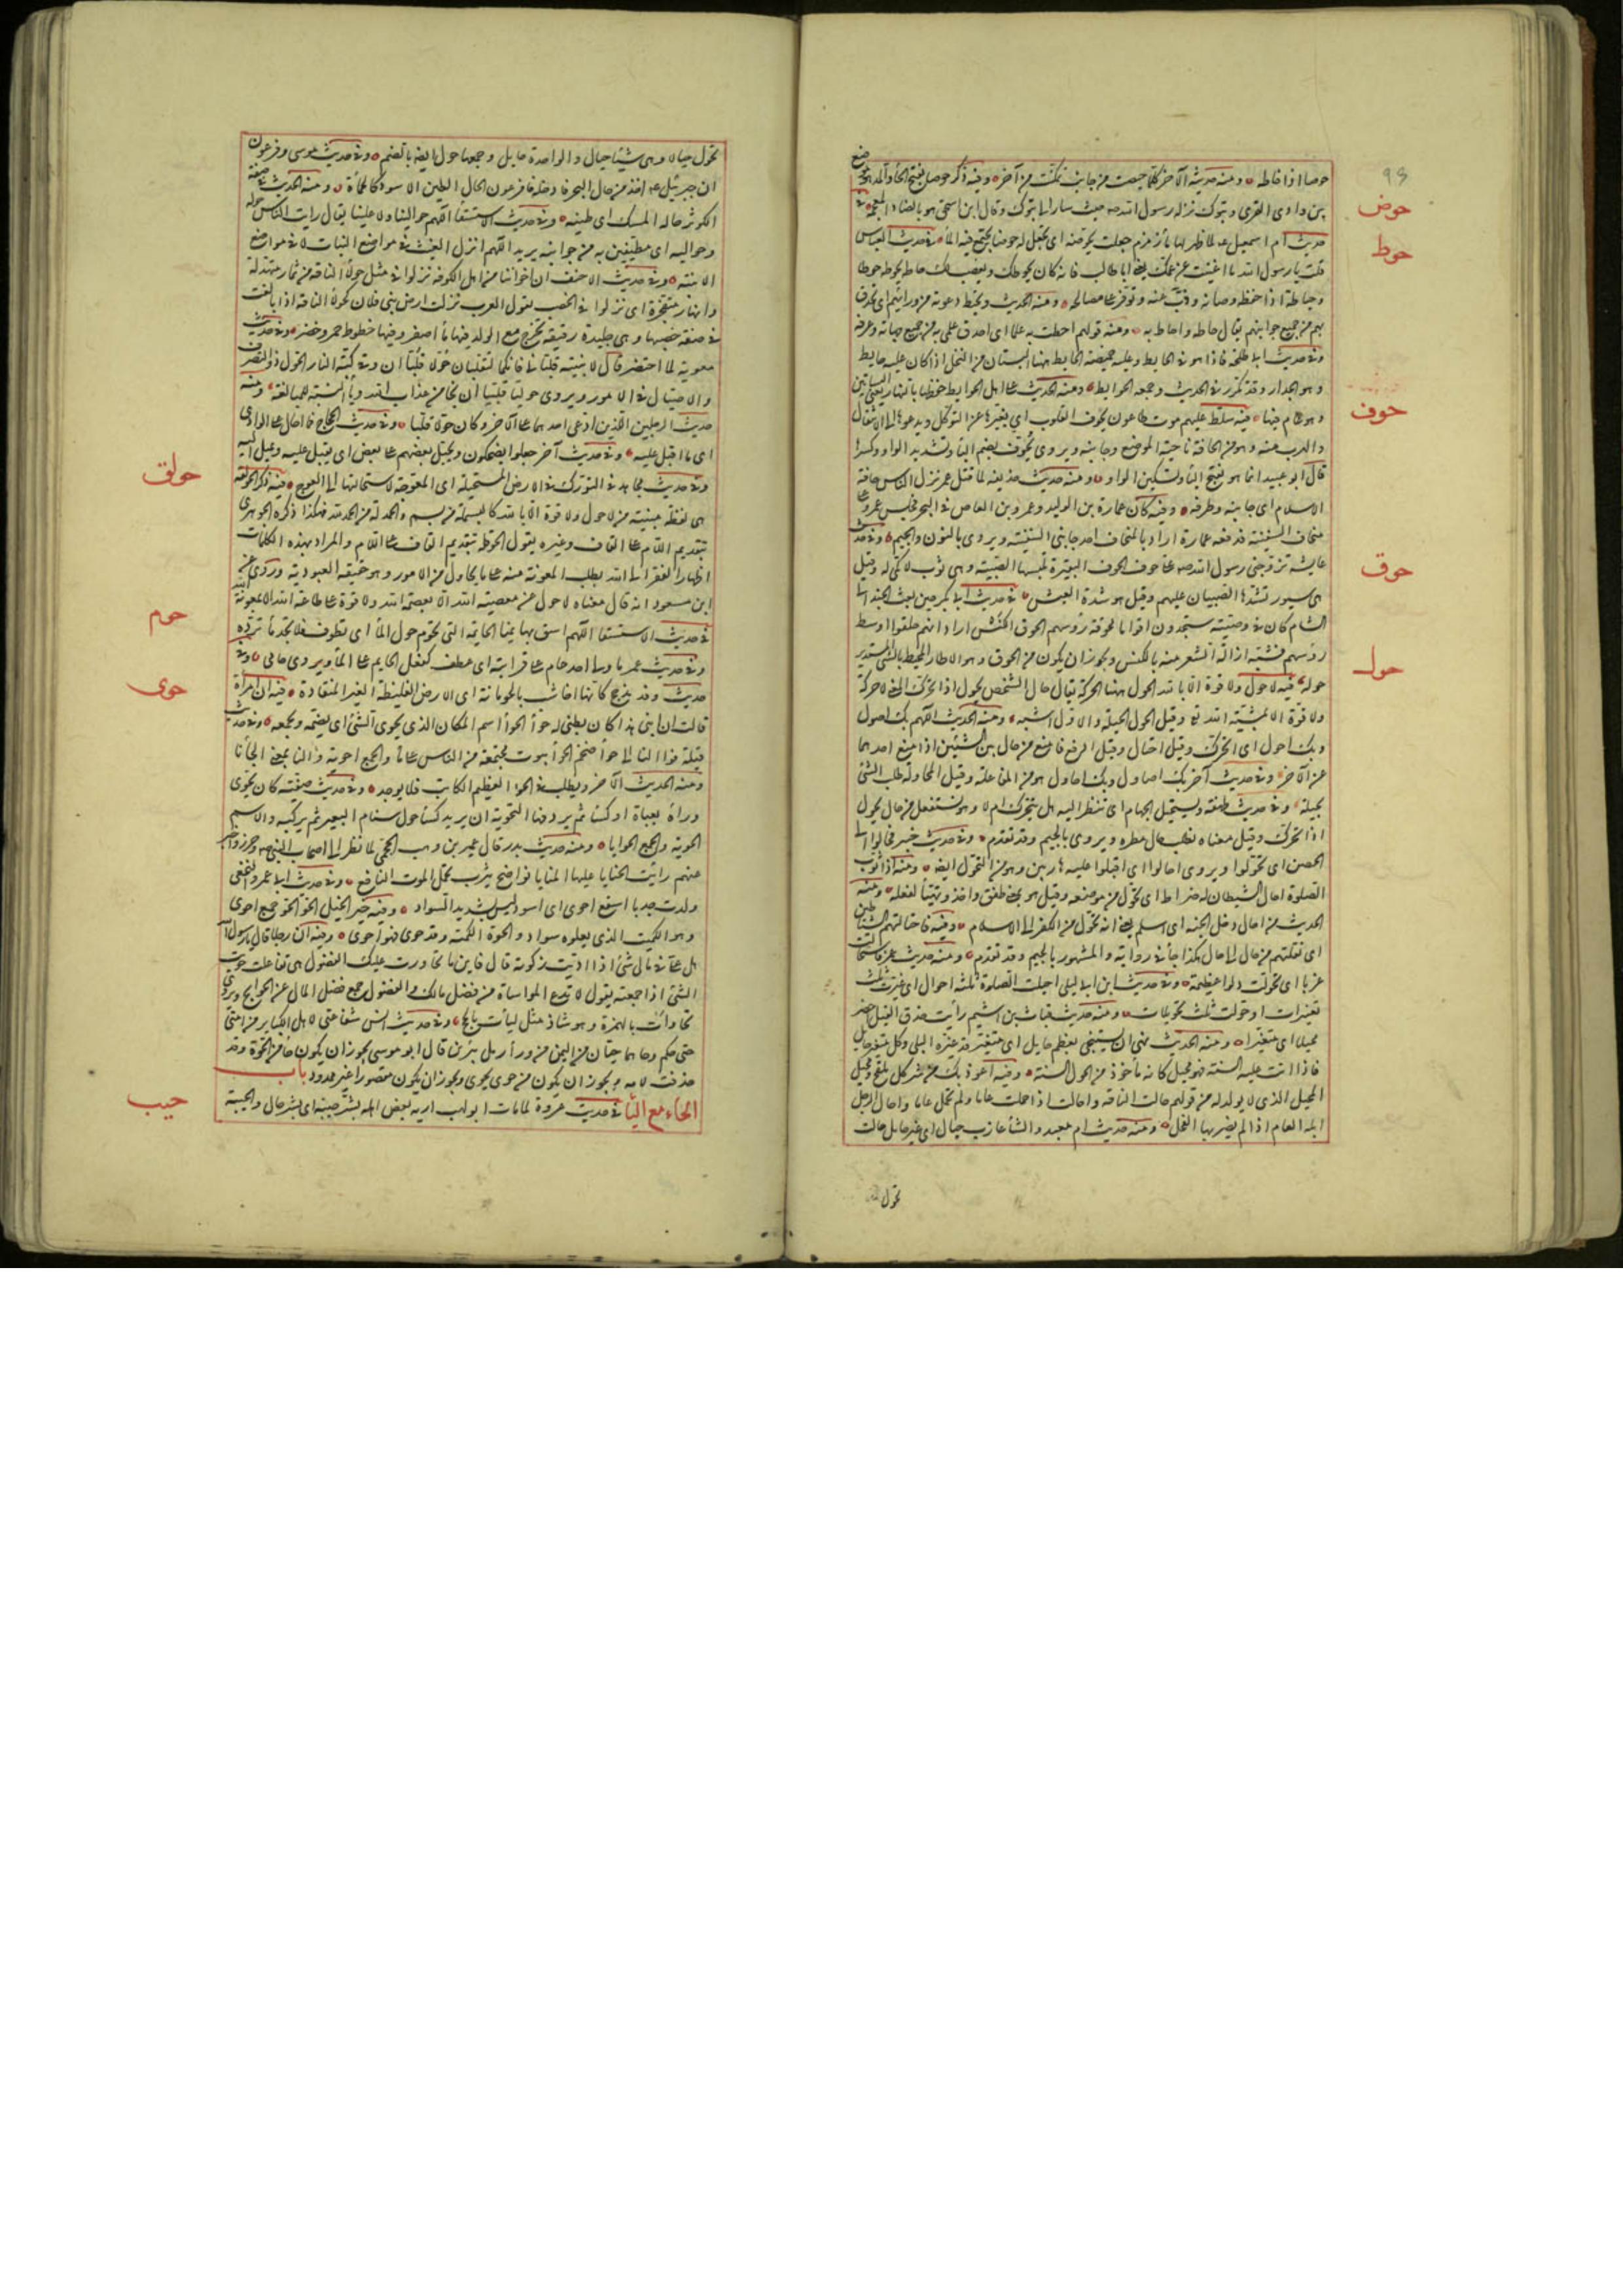 ٩٩
حوصا اذا خاطه ومنه حديثه الآخر كلما حيصت من جانب تهتكت من آخر وفيه ذكر حوصاء بفتح الحاء والمد هو موضع
حوض
بين وادى القرى وتبوك نزله رسول الله حيث سار الى تبوك وقال ابن اسحق هو بالضاد المعجمة فى
حديث ام اسمعيل لما ظهر لها ماء زمزم جعلت تحوضه اى تجعل له حوضا يجتمع فيه الماء فى حديث العباس
حوط
قلت يا رسول الله ما اغنيت عن عمك يعنى ابا طالب فانه كان يحوطك ويغضب لك حاطه يحوطه حوطا
وحياطة اذا حفظه وصانه وذب عنه وتوفر على مصالحه ومنه الحديث وتحيط دعوته من ورائهم اى تحدق
بهم من جميع جوانبهم يقال حاطه واحاط به ومنه قولهم احطت به علما اى احدق علمى به من جميع جهاته وعرفه
وفى حديث ابى طلحة فاذا هو فى الحايط وعليه خميصة الحايط ههنا البستان من النخل اذا كان عليه حايط
وهو الجدار وقد تكرر فى الحديث وجمعه الحوايط ومنه الحديث على اهل الحوايط حفظها بالنهار يعنى البساتين
حوف
وهو عام فيها فيه سلط عليهم موت طاعون يحوف القلوب اى يغيرها عن التوكل ويدعوها الى الانتقال
والهرب منه وهو من الحافة ناحية الموضع وجانبه ويروى يحوف بضم الياء وتشديد الواو وكسرها
قال ابو عبيد انما هو بفتح الياء وتسكين الواو ومنه حديث حذيفة لما قتل عمر نزل الناس حافة
الاسلام اى جانبه وطرفه وفيه كان عمارة بن الوليد وعمرو بن العاص فى البحر فجلس عمرو على
منحاف السفينة فدفعه عمارة اراد بالمنحاف احد جانبى السفينة ويروى بالنون والجيم وفى حديث
عايشة تزوجنى رسول الله وعلى حوف الحوف البقيرة تلبسها الصبية وهى ثوب لا كمى له وقيل
حوق
هى سيور تشدها الصبيان عليهم وقيل هو شدة العيش فى حديث ابى بكر حين بعث الجند الى
الشام كان فى وصيته ستجدون اقواما محوقة رؤسهم الحوق الكنس اراد انهم حلقوا اوسط
رؤسهم فشبه ازالة الشعر منه بالكنس ويجوز ان يكون من الحوق وهو الاطار المحيط بالشئ المستدير
حول
حوله فيه لا حول ولا قوة الا بالله الحول ههنا الحركة يقال حال الشخص يحول اذا تحرك المعنى لا حركة
ولا قوة الا بمشية الله وقيل الحول الحيلة والاول اشبه ومنه الحديث اللهم بك اصول
وبك احول اى اتحرك وقيل احتال وقيل ادفع وامنع من حال بين الشيئين اذا منع احدهما
عن الآخر وفى حديث آخر بك اصاول وبك احاول هو من المفاعلة وقيل المحاولة طلب الشئ
بحيلة وفى حديث طهفة ونستحيل الجهام اى ننظر اليه هل يتحرك ام لا وهو نستفعل من حال يحول
اذا تحرك وقيل معناه نطلب حال مطره ويروى بالجيم وقد تقدم وفى حديث خيبر فحالوا الى
الحصن اى تحولوا ويروى احالوا اى اقبلوا عليه هاربين وهو من التحول ايضا ومنه اذا ثوب
الصلوة احال الشيطان له ضراط اى تحول من موضعه وقيل هو بمعنى طفق واخذ وتهيأ لفعله ومنه
الحديث من احال دخل الجنة اى اسلم يعنى انه تحول من الكفر الى الاسلام وفيه فاحتالتهم الشياطين
اى نقلتهم من حال الى حال هكذا جاء فى رواية والمشهور بالجيم وقد تقدم ومنه حديث عمر فاستحالت
غربا اى تحولت دلوا عظيمة وفى حديث ابن ابى ليلى احيلت الصلوة ثلثة احوال اى غيرت ثلث
تغييرات او حولت ثلث تحويلات ومنه حديث قباث بن اشيم رأيت خذق الفيل اخضر
محيلا اى متغيرا ومنه الحديث نهى ان يستنجى بعظم حايل اى متغير قد غيره البلى وكل متغير حايل
فاذا اتت عليه السنة فهو محيل كانه مأخوذ من الحول السنة وفيه اعوذ بك من شر كل ملقح ومحيل
المحيل الذى لا يولد له من قولهم حالت الناقة واحالت اذا حملت عاما ولم تحمل عاما واحال الرجل
ابله العام اذا لم يضربها الفحل ومنه حديث ام معبد والشاء عازب حيال اى غير حايل حالت
تحول
تحول حيالا وهى شياه حيال والواحدة حايل وجمعها حول ايضا بالضم وفى حديث موسى وفرعون
ان جبرئيل اخذ من حال البحر فادخله فا فرعون الحال الطين الاسود كالحمأة ومنه الحديث فى صفة
الكوثر حاله المسك اى طينه وفى حديث الاستسقاء اللهم حوالينا ولا علينا يقال رايت الناس حوله
وحواليه اى مطيفين به من جوانبه يريد اللهم انزل الغيث فى مواضع النبات لا فى مواضع
الابنية وفى حديث الاحنف ان اخواننا من اهل الكوفة نزلوا فى مثل حولاء الناقة من ثمار متهدلة
وانهار متفجرة اى نزلوا فى الخصب يقول العرب تركت ارض بنى فلان كحولاء الناقة اذا بالغت
فى صفة خصبها وهى جليدة رقيقة تخرج مع الولد فيها ماء اصفر وفيها خطوط حمر وخضر وفى حديث
معوية لما احتضر قال لابنتيه قلبانى فانكما لتقلبان حولا قلبا ان وقى كبة النار الحول ذو التصرف
والاحتيال فى الامور ويروى حوليا قلبيا ان نجا من عذاب الله وياء النسبة للمبالغة ومنه
حديث الرجلين اللذين ادعى احدهما على الآخر وكان حولا قلبا وفى حديث الحجاج فما احال على الوادى
اى ما اقبل عليه وفى حديث آخر فجعلوا يضحكون ويحيل بعضهم على بعض اى يقبل عليه ويميل اليه
حولق
وفى حديث مجاهد فى التورك فى الارض المستحيلة اى المعوجة لاستحالتها الى العوج فيه ذكر الحولقة
هى لفظة مبنية من لا حول ولا قوة الا بالله كالبسملة من بسم والحمدلة من الحمد لله هكذا ذكره الجوهرى
بتقديم اللام على القاف وغيره يقول الحوقلة بتقديم القاف على اللام والمراد بهذه الكلمات
اظهار الفقر الى الله بطلب المعونة منه على ما يحاول من الامور وهو حقيقة العبودية وروى عن
ابن مسعود انه قال معناه لا حول عن معصية الله الا بعصمة الله ولا قوة على طاعة الله الا بمعونة الله
حوم
فى حديث الاستسقاء اللهم ارحم بهايمنا الحايمة التى تحوم حول الماء اى تطوف فلا تجد ماء ترده
وفى حديث عمر ما ولى احد الا حام على قرابته اى عطف كفعل الحايم على الماء ويروى حامى وفى
حديث وفد مذحج كانها اخاشب بالحومانة اى الارض الغليظة الغير المنقادة فيه ان امرأة
حوى
قالت ان ابنى هذا كان بطنى له حواء الحواء اسم المكان الذى يحوى الشئ اى يضمه ويجمعه وفى حديث
قيلة فوالنا الى حواء ضخم الحواء بيوت مجتمعة من الناس على ماء والجمع احوية ووالنا بمعنى لجأنا
ومنه الحديث الآخر ويطلب فى الحواء العظيم الكاتب فلا يوجد وفى حديث صفية كان يحوى
وراءه بعباءة او كساء ثم يردفها التحوية ان يدير كساء حول سنام البعير ثم يركبه والاسم
الحوية والجمع الحوايا ومنه حديث بدر قال عمير بن وهب الجمحى لما نظر الى اصحاب النبى وحزرهم واخبر
عنهم رايت الحوايا عليها المنايا نواضح يثرب تحمل الموت الناقع وفى حديث ابى عمرو النخعى
ولدت جديا اسفع احوى اى اسود ليس بشديد السواد وفيه خير الخيل الحو الحو جمع احوى
وهو الكميت الذى يعلوه سواد والحوة الكمتة وقد حوى فهو احوى وفيه ان رجلا قال يا رسول الله
هل على فى مالى شئ اذا اديت زكوته قال فاين ما تحاوت عليك الفضول هى تفاعلت من حويت
الشئ اذا جمعته يقول لا تدع المواساة من فضل مالك والفضول جمع فضل المال عن الحوايج ويروى
تحاوأت بالهمزة وهو شاذ مثل لبأت بالحج وفى حديث انس شفاعتى لاهل الكباير من امتى
حتى حكم وحا هما حيان من اليمن من وراء رمل يبرين قال ابو موسى يجوز ان يكون حا من الحوة وقد
حذفت لامه ويجوز ان يكون من حوى يحوى ويجوز ان يكون مقصورا غير ممدود باب
حيب
الحاء مع الياء فى حديث عروة لما مات ابو لهب اريه بعض اهله بشر حيبة اى بشر حال والحيبة